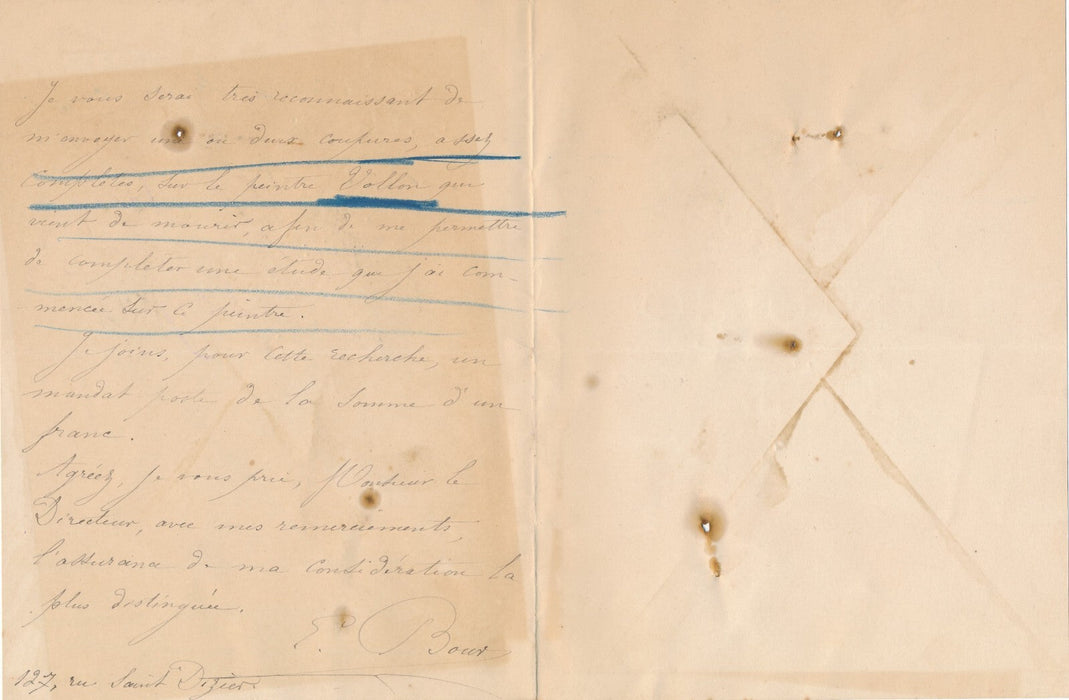 Je vous serai très reconnaissant de
m'envoyer une ou deux coupures, assez
complètes, sur le peintre Vollon qui
vient de mourir, afin de me permettre
de completer une étude que j'ai com-
mencée sur ce peintre.
Je joins, pour cette recherche, un
mandat poste de la somme d'un
franc.
Agréez, je vous prie, Monsieur le
Directeur, avec mes remerciements,
l'assurance de ma considération la
plus distinguée.
E. Bour
127, rue Saint Dizier.